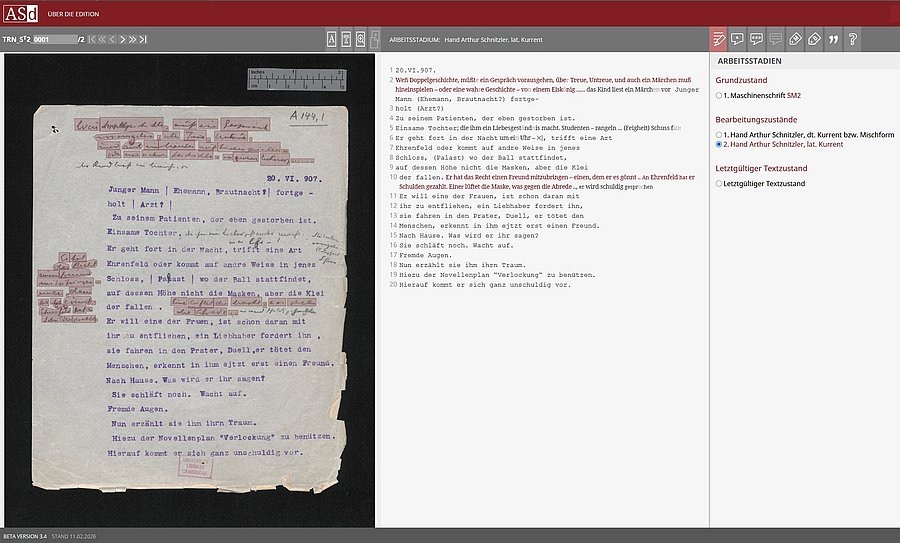 ASd ÜBER DIE EDITION
TRN_ST2_0001 /2
ARBEITSSTADIUM: Hand Arthur Schnitzler, lat. Kurrent
Inches 1 2
cm
A 144,1
20. VI. 907.
Junger Mann | Ehemann, Brautnacht? | fortge -
holt | Arzt? |
Zu seinem Patienten, der eben gestorben ist.
Einsame Tochter.
Er geht fort in der Nacht, trifft eine Art
Ehrenfeld oder kommt auf andre Weise in jenes
Schloss, | Palast | wo der Ball stattfindet,
auf dessen Höhe nicht die Masken, aber die Klei
der fallen .
Er will eine der Fruen, ist schon daran mit
ihr zu entfliehen, ein Liebhaber fordert ihn ,
sie fahren in den Prater, Duell, er tötet den
Menschen, erkennt in ihm ejtzt erst einen Freund.
Nach Hause. Was wird er ihr sagen?
Sie schläft noch. Wacht auf.
Fremde Augen.
Nun erzählt sie ihm ihrn Traum.
Hiezu der Novellenplan "Verlockung" zu benützen.
Hierauf kommt er sich ganz unschuldig vor.
UNIVERSITY
LIBRARY
CAMBRIDGE
1 20.VI.907.
2 Wen̄ Doppelgeschichte, müßte ein Gespräch vorausgehen, über Treue, Untreue, und auch ein Märchen muß
hineinspielen – oder eine wahre Geschichte – von einem Eiskönig ...... das Kind liest ein Märchen vor Junger
Mann (Ehemann, Brautnacht?) fortge-
3 holt (Arzt?)
4 Zu seinem Patienten, der eben gestorben ist.
5 Einsame Tochter; die ihm ein Liebesgeständnis macht. Studenten – rangeln ... (Feigheit) Schuss
6 Er geht fort in der Nacht um ein Uhr – XI, trifft eine Art
7 Ehrenfeld oder kommt auf andre Weise in jenes
8 Schloss, (Palast) wo der Ball stattfindet,
9 auf dessen Höhe nicht die Masken, aber die Klei
10 der fallen. Er hat das Recht einen Freund mitzubringen – einen, dem er es gönnt .. An Ehrenfeld hat er
Schulden gezahlt. Einer lüftet die Maske, was gegen die Abrede ... er wird schuldig gesprochen
11 Er will eine der Frauen, ist schon daran mit
12 ihr zu entfliehen, ein Liebhaber fordert ihn,
13 sie fahren in den Prater, Duell, er tötet den
14 Menschen, erkennt in ihm ejtzt erst einen Freund.
15 Nach Hause. Was wird er ihr sagen?
16 Sie schläft noch. Wacht auf.
17 Fremde Augen.
18 Nun erzählt sie ihm ihrn Traum.
19 Hiezu der Novellenplan "Verlockung" zu benützen.
20 Hierauf kommt er sich ganz unschuldig vor.
ARBEITSSTADIEN
Grundzustand
1. Maschinenschrift SM2
Bearbeitungszustände
1. Hand Arthur Schnitzler, dt. Kurrent bzw. Mischform
2. Hand Arthur Schnitzler, lat. Kurrent
Letztgültiger Textzustand
Letztgültiger Textzustand
BETA VERSION 3.4 STAND 11.02.2026